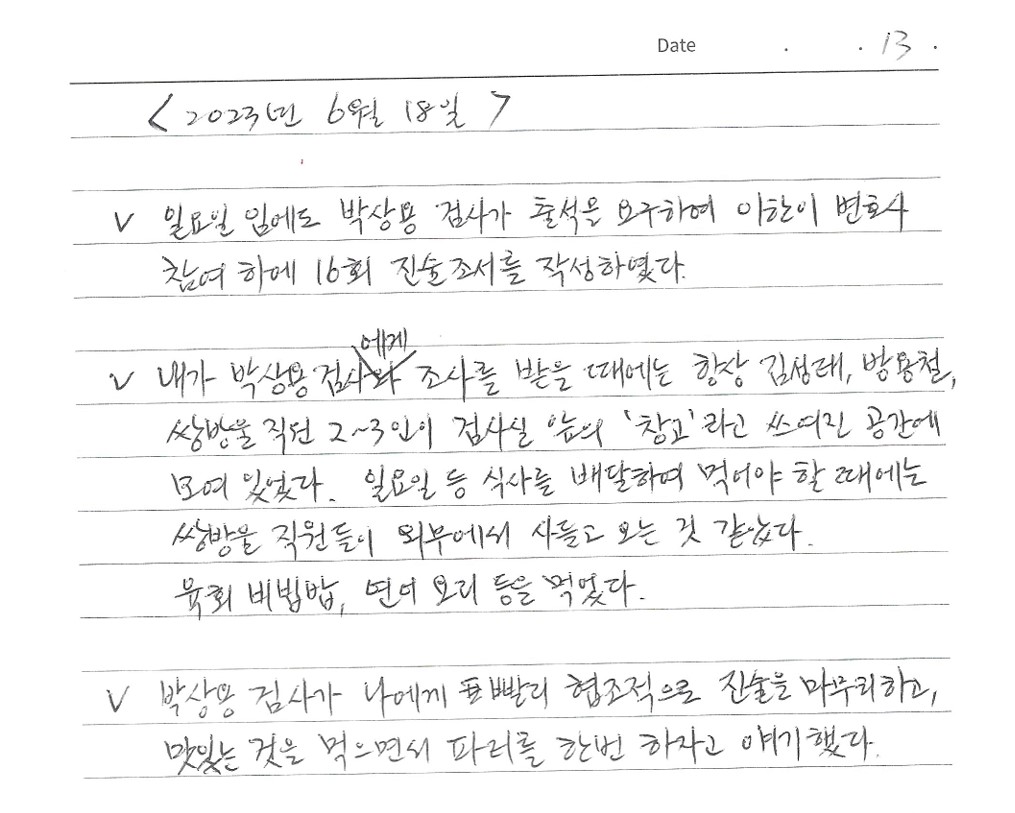 Date . . 13 .
< 2023년 6월 18일 >
V 일요일 임에도 박상용 검사가 출석을 요구하여 이한이 변호사
참여 하에 16회 진술조서를 작성하였다.
에게
V 내가 박상용 검사와 조사를 받을 때에는 항상 김성태, 방용철,
쌍방울 직원 2~3인이 검사실 앞의 '창고'라고 쓰여진 공간에
모여 있었다. 일요일 등 식사를 배달하여 먹어야 할 때에는
쌍방울 직원들이 외부에서 사들고 오는 것 같았다.
육회 비빔밥, 연어 요리 등을 먹었다.
V 박상용 검사가 나에게 빨리 협조적으로 진술을 마무리하고,
맛있는 것을 먹으면서 파티를 한번 하자고 얘기했다.